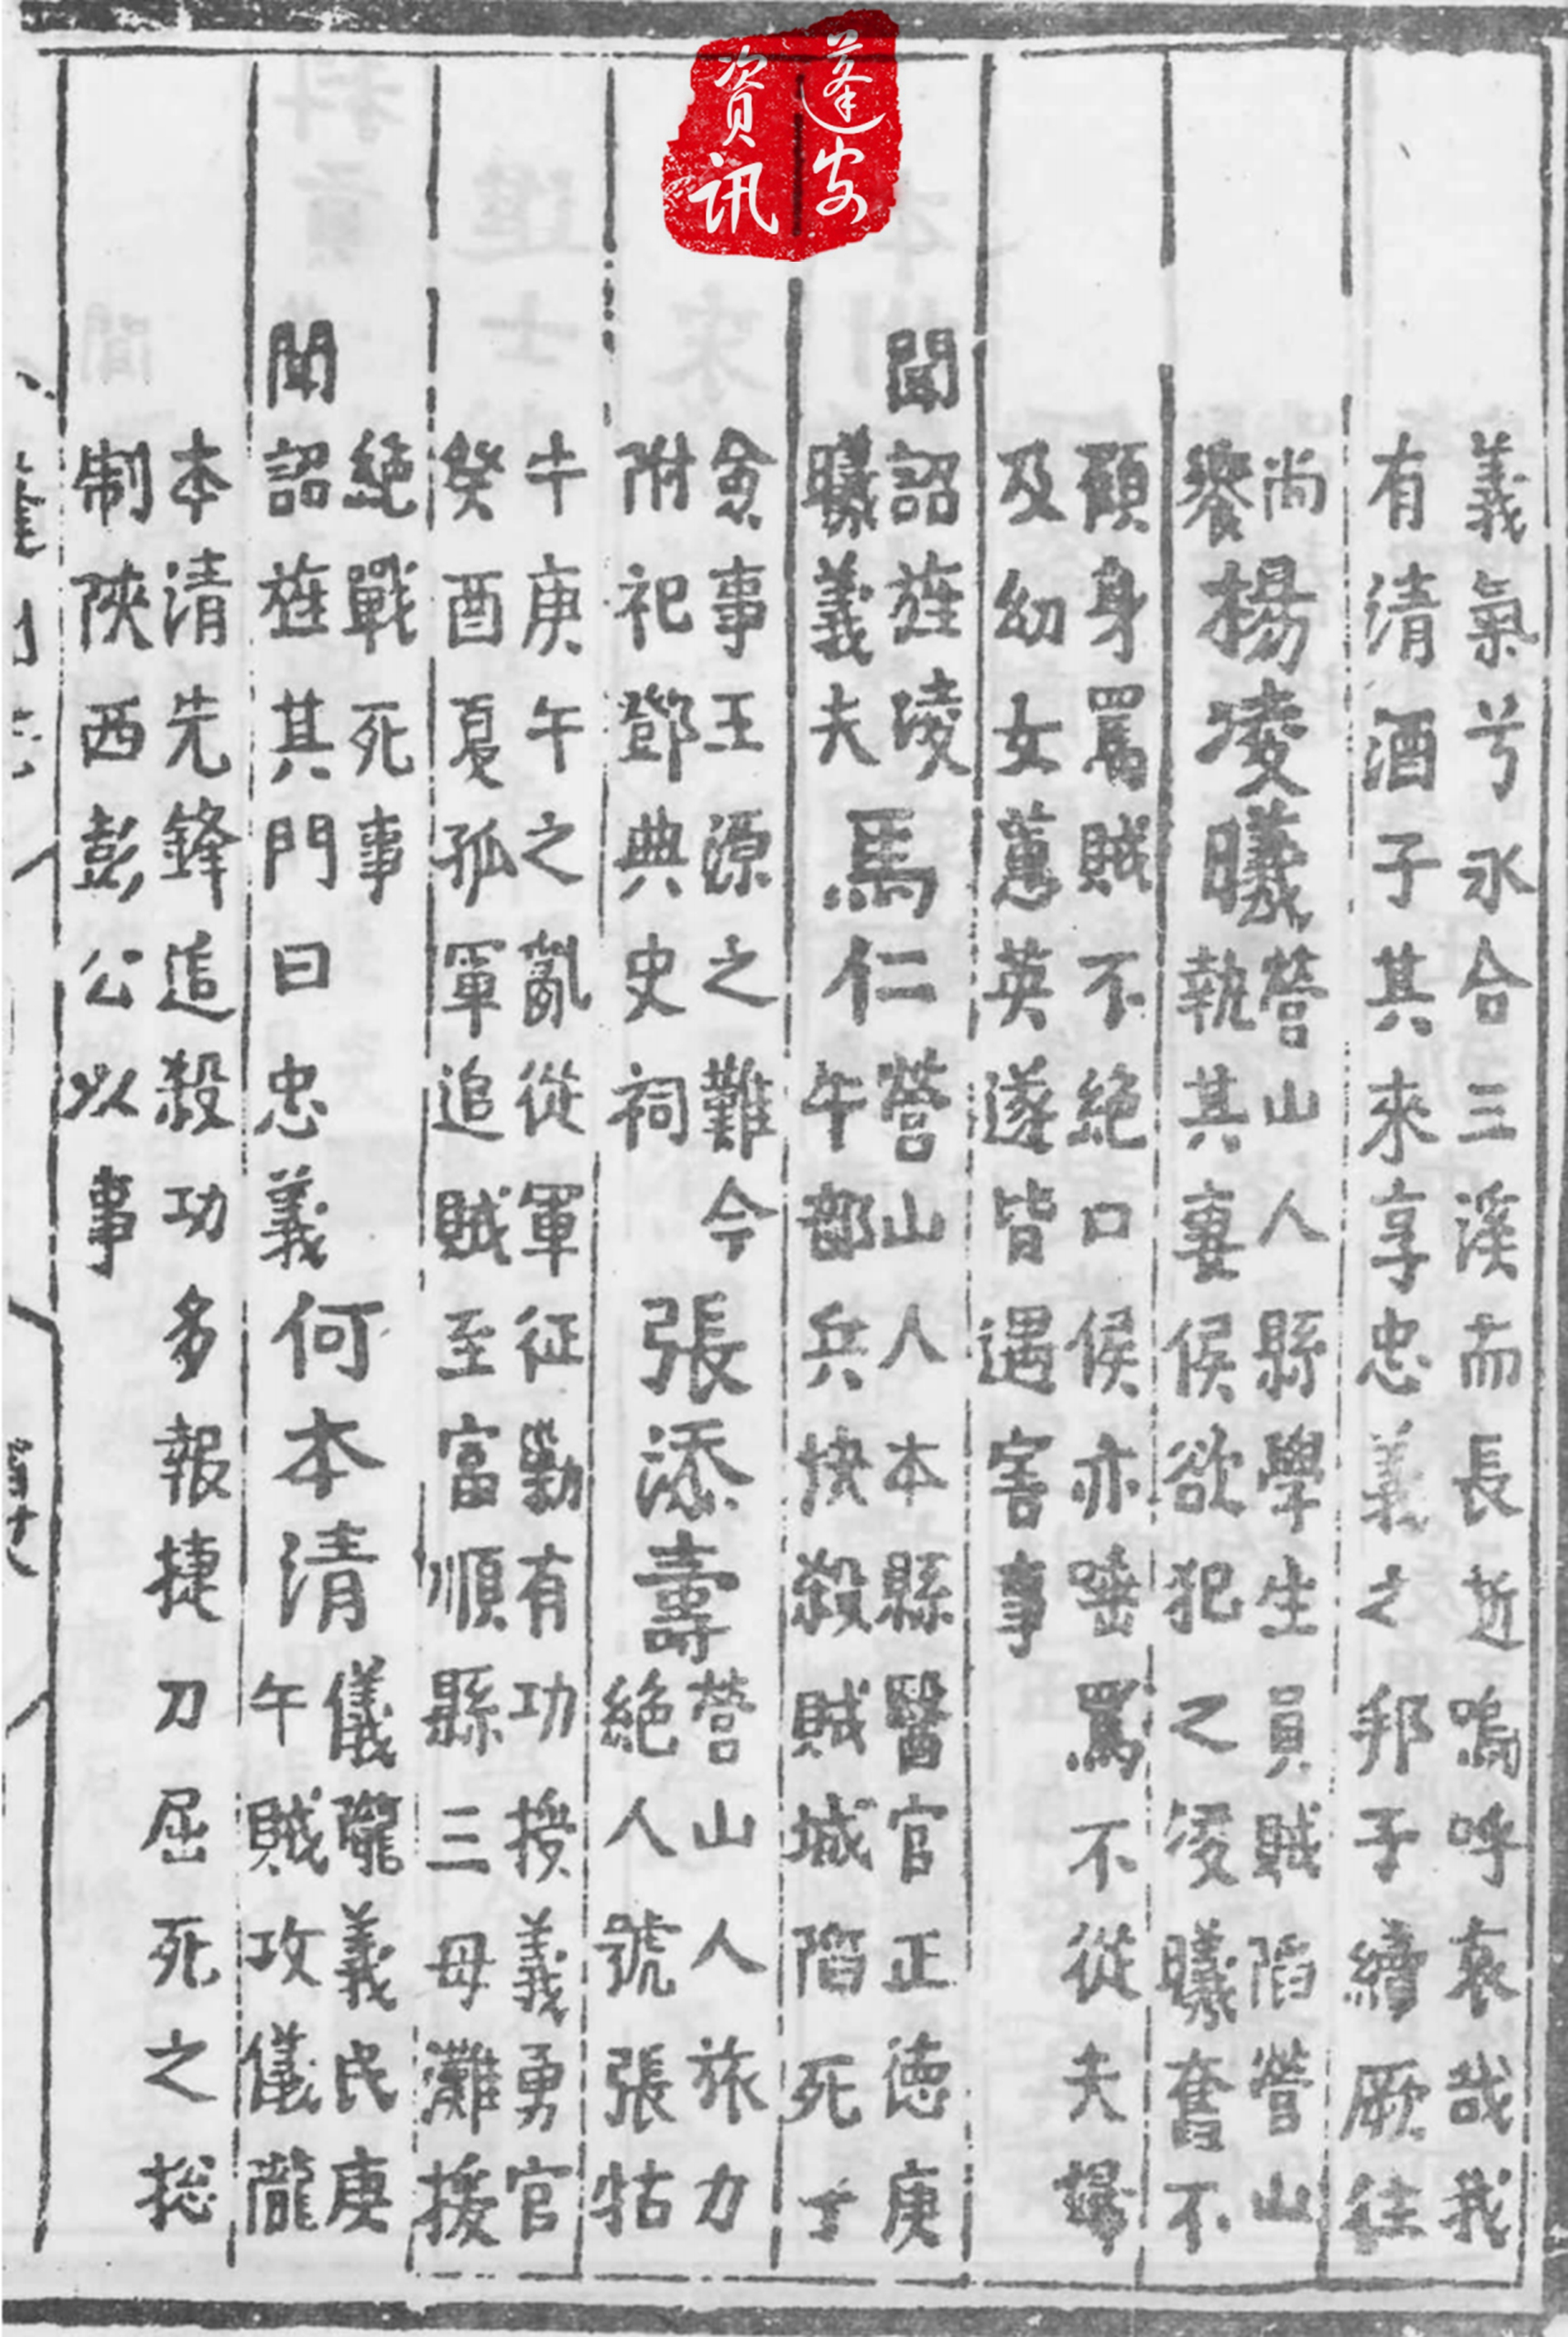 蓬安
资讯
義氣兮永合三溪而長逝嗚呼哀哉我
有清酒子其來享忠義之邦予子續厥往
尚
饗
楊凌曦
營山人縣學生員賊陷營山
執其妻侯欲犯之凌曦奮不
顧身罵賊不絕口侯亦唾罵不從夫婦
及幼女蕙英遂皆遇害事
聞詔旌凌
曦義夫
馬仁
營山人本縣醫官正德庚
午部兵快殺賊城陷死于
僉事王源之難今
附祀鄧典史祠
張添壽
營山人旅力
絕人號張牯
牛庚午之亂從軍征勦有功授義勇官
癸酉夏孤軍追賊至富順縣三母灘援
絕戰死事
聞詔旌其門曰忠義
何本清
儀隴義民庚
午賊攻儀隴
本清先鋒追殺功多報捷刀屈死之総
制陝西彭公以事